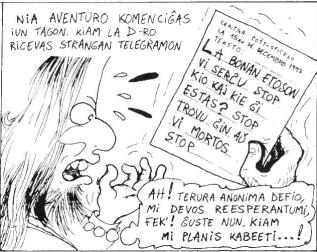 NIA AVENTURO KOMENCIĜAS
IUN TAGON, KIAM LA D-RO
RICEVAS STRANGAN TELEGRAMON
CENTRA POŜTOFICEJO
LA 15AN DE DECEMBRO 1997
TEKSTO:
LA BONAN ETOSON
VI SERĈU STOP
KIO KAJ KIE ĜI
ESTAS? STOP
TROVU ĜIN AŬ
VI MORTOS
STOP
AH! TERURA ANONIMA DEFIO,
MI DEVOS REESPERANTUMI,
FEK'! ĜUSTE NUN, KIAM
MI PLANIS KABEETI...!